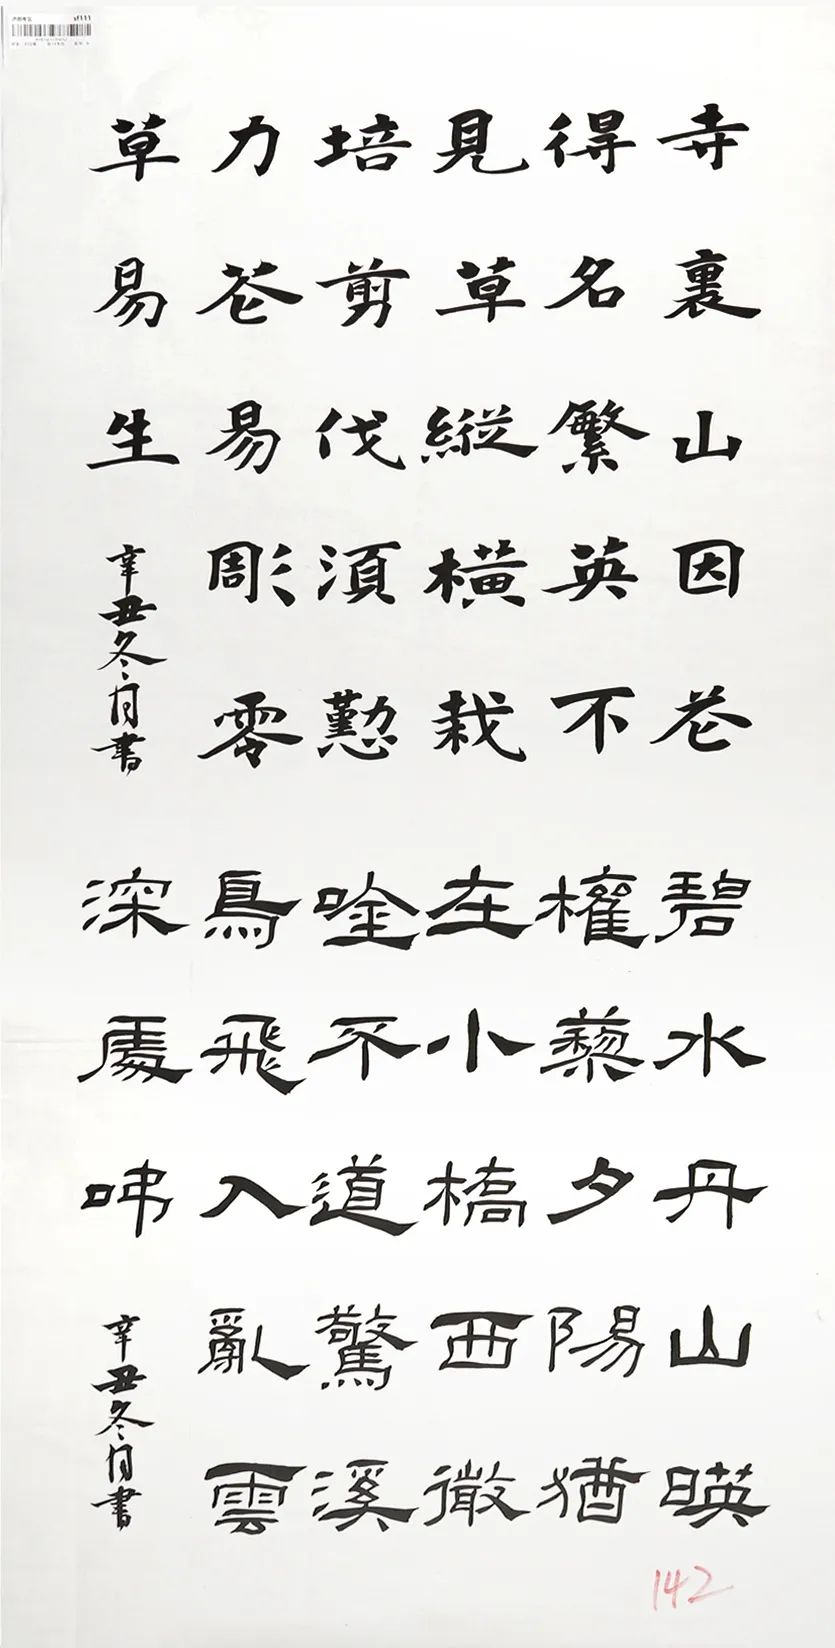 寺裏山因花
得名繁英不
見草縱橫栽
培剪伐須懃
力花易彫零
草易生
辛丑冬月書
碧水丹山暎
杖藜夕陽猶
在小橋西微
吟不道驚溪
鳥飛入亂雲
深處啼
辛丑冬月書
142